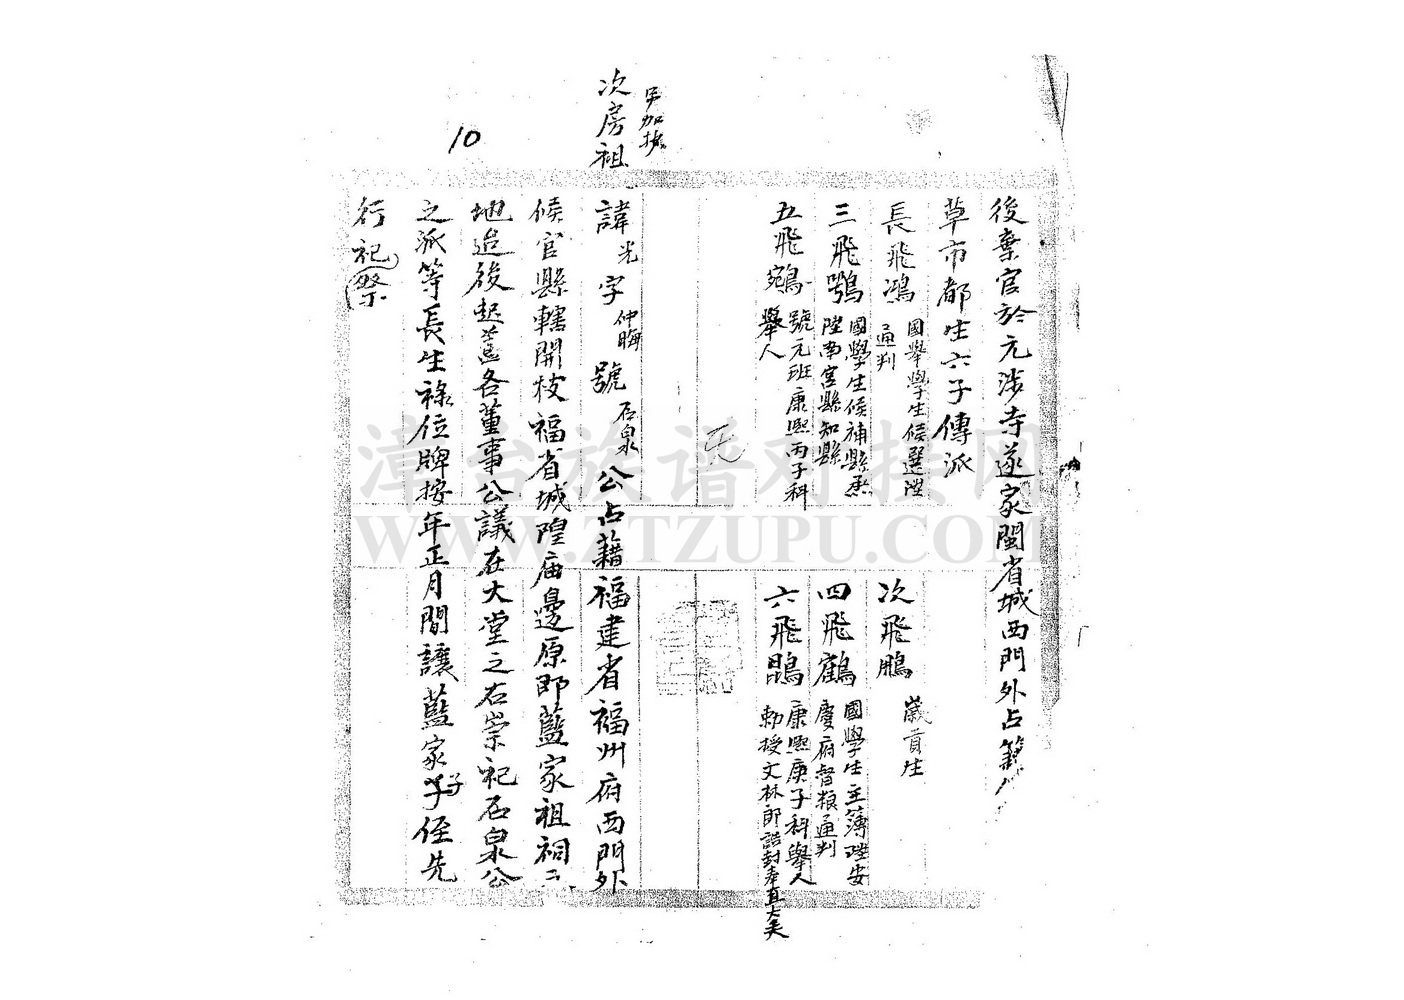 後棄官於元涉寺遂家閩省城西門外占籍
草市都生六子傳派
長飛鴻 國舉學生候選陞通判
次飛鵬 歲貢生
三飛鶚 國學生候補縣丞陞南宮縣知縣
四飛鶴 國學生主簿陞安慶府督粮通判
五飛鵷 號元班康熙丙子科舉人
六飛鵾 康熙庚子科舉人勅授文林郎誥封奉直大夫
次房祖
諱光字仲晦號石泉公占籍福建省福州府西門外
候官縣轄開枝福省城隍庙邊原即藍家祖祠二
地迨後起蓋各董事公議在大堂之右崇祀石泉公
之派等長生祿位牌按年正月間讓藍家子侄先
行祀祭
10
漳台族谱对接网
WWW.ZTZUPU.COM